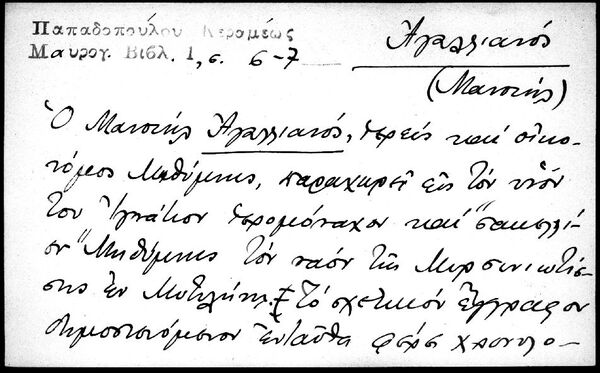 Παπαδοπούλου Κεραμέως
Μαυρογ. Βιβλ. 1, σ. 6-7
Ἀγαλλιανός
(Μανουήλ)
Ὁ Μανουήλ Ἀγαλλιανός, ἱερεύς καί οἰκο-
νόμος Μηθύμνης, παραχωρεῖ εἰς τόν υἱόν
του Ἰγνάτιον ἱερομόναχον καί "σακελλί-
ον" Μηθύμνης τόν ναόν τῆς Μυρσινιωτίσ-
σης ἐν Μυτιλήνῃ. Τό σχετικόν ἔγγραφον
δημοσιευόμενον ἐνταῦθα φέρει χρονολο-